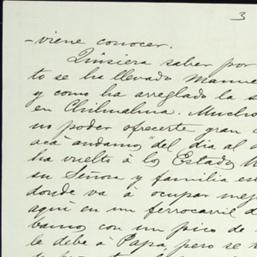 3
-viene conocer.
Quisiera saber por
to se ha llevado Manue
y como ha arreglado la s
en Chihuahua. Mucho
no poder ofrecerte gran
acá andamos del día al
ha vuelto á los Estados U
su Señora y familia es
donde va á ocupar mej
aquí en un ferrocarril d
bamos con un pico de
le debe á Papá, pero se